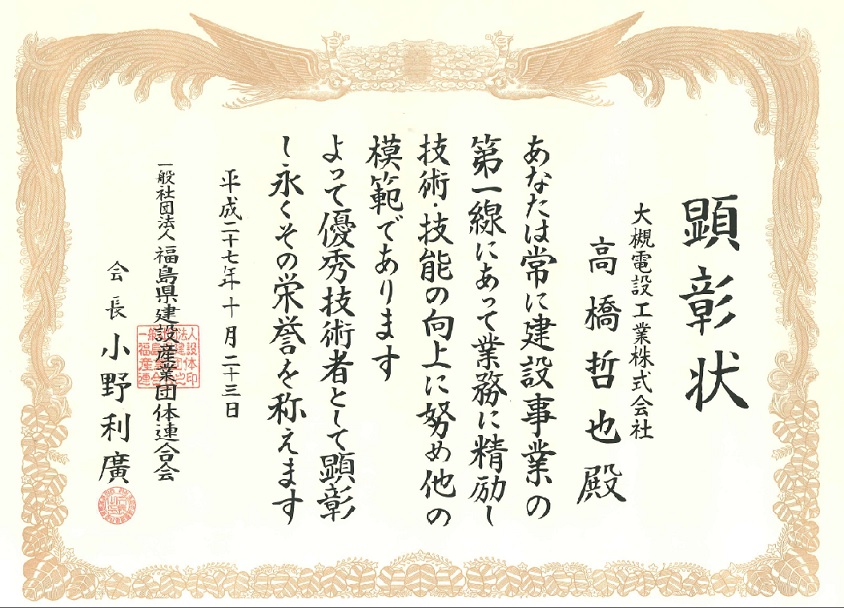 顕彰状
大槻電設工業株式会社
高橋哲也殿
あなたは常に建設事業の
第一線にあって業務に精励し
技術・技能の向上に努め他の
模範であります
よって優秀技術者として顕彰
し永くその栄誉を称えます
平成二十七年十月二十三日
一般社団法人福島県建設産業団体連合会
会長小野利廣